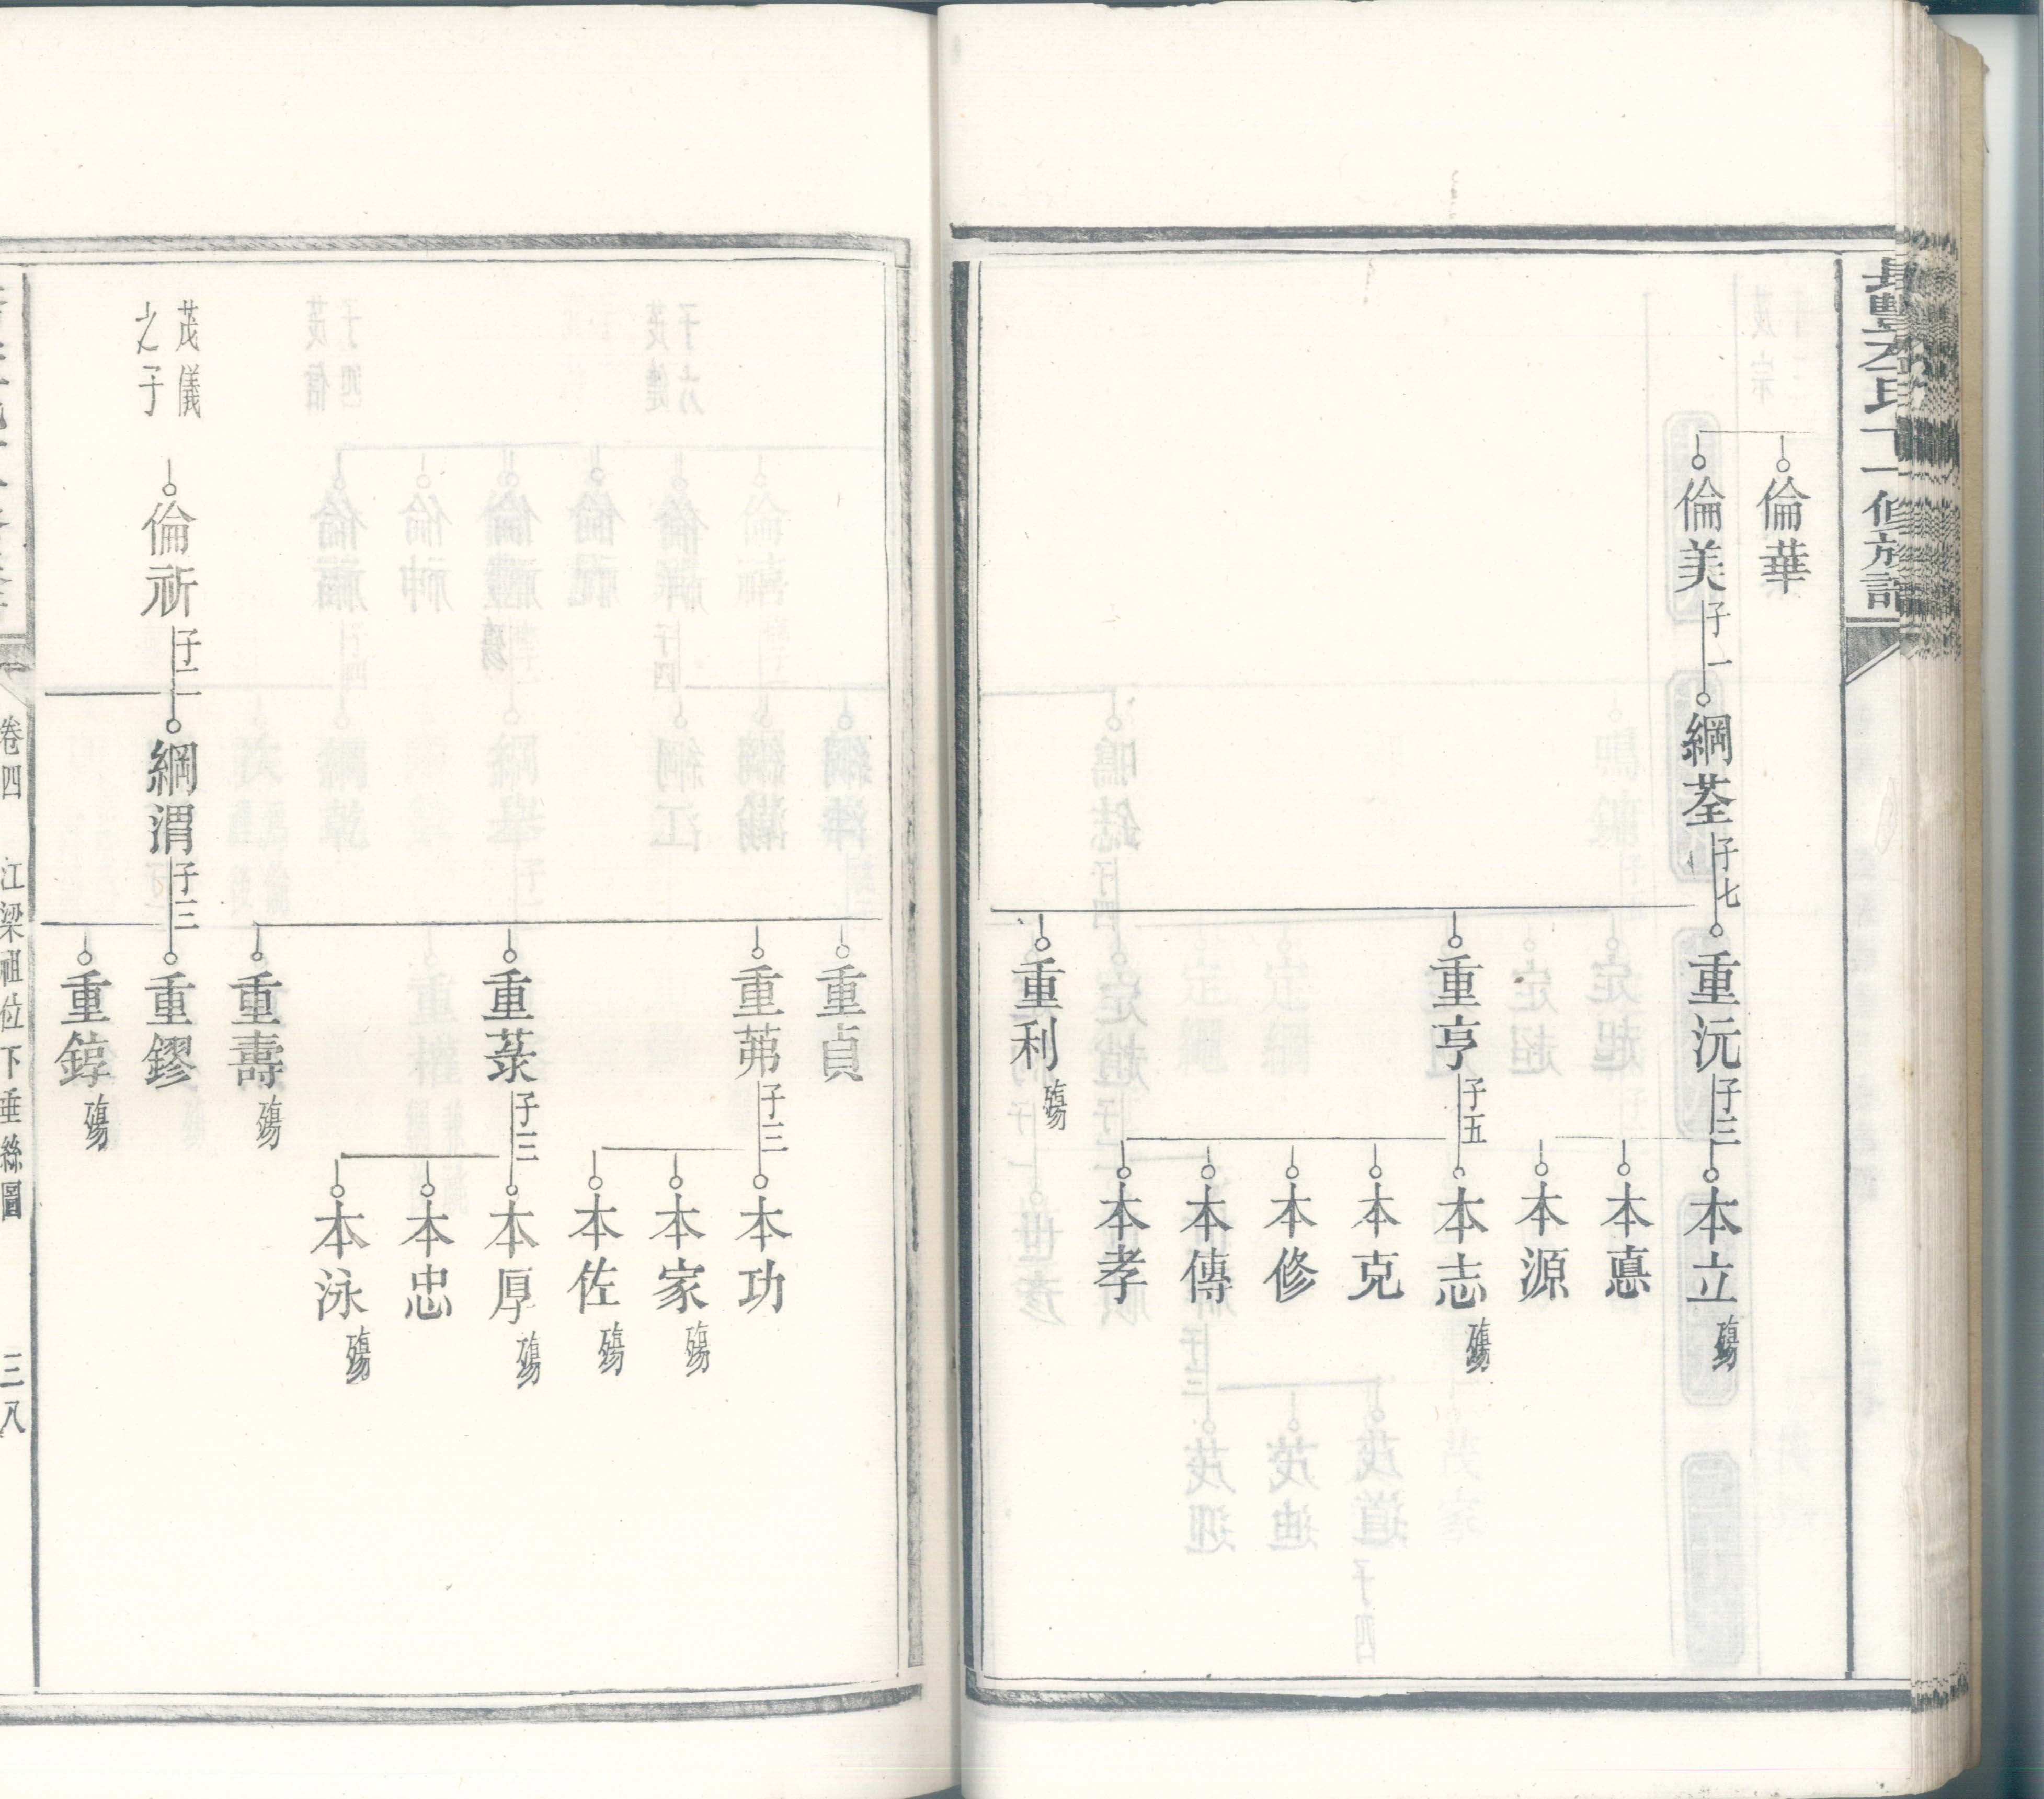 倫華
倫美
子一
綱荃
子七
重沅
子三
本立
殤
本悳
本源
重亨
子五
本志
殤
本克
本修
本傳
本孝
重利
殤
重貞
重茀
子三
本功
本家
殤
本佐
殤
重菉
子三
本厚
殤
本忠
本泳
殤
重壽
殤
茂儀
之子
倫祈
子二
綱渭
子三
重鏐
重錞
殤
卷四
江梁祖位下垂絲圖
三八